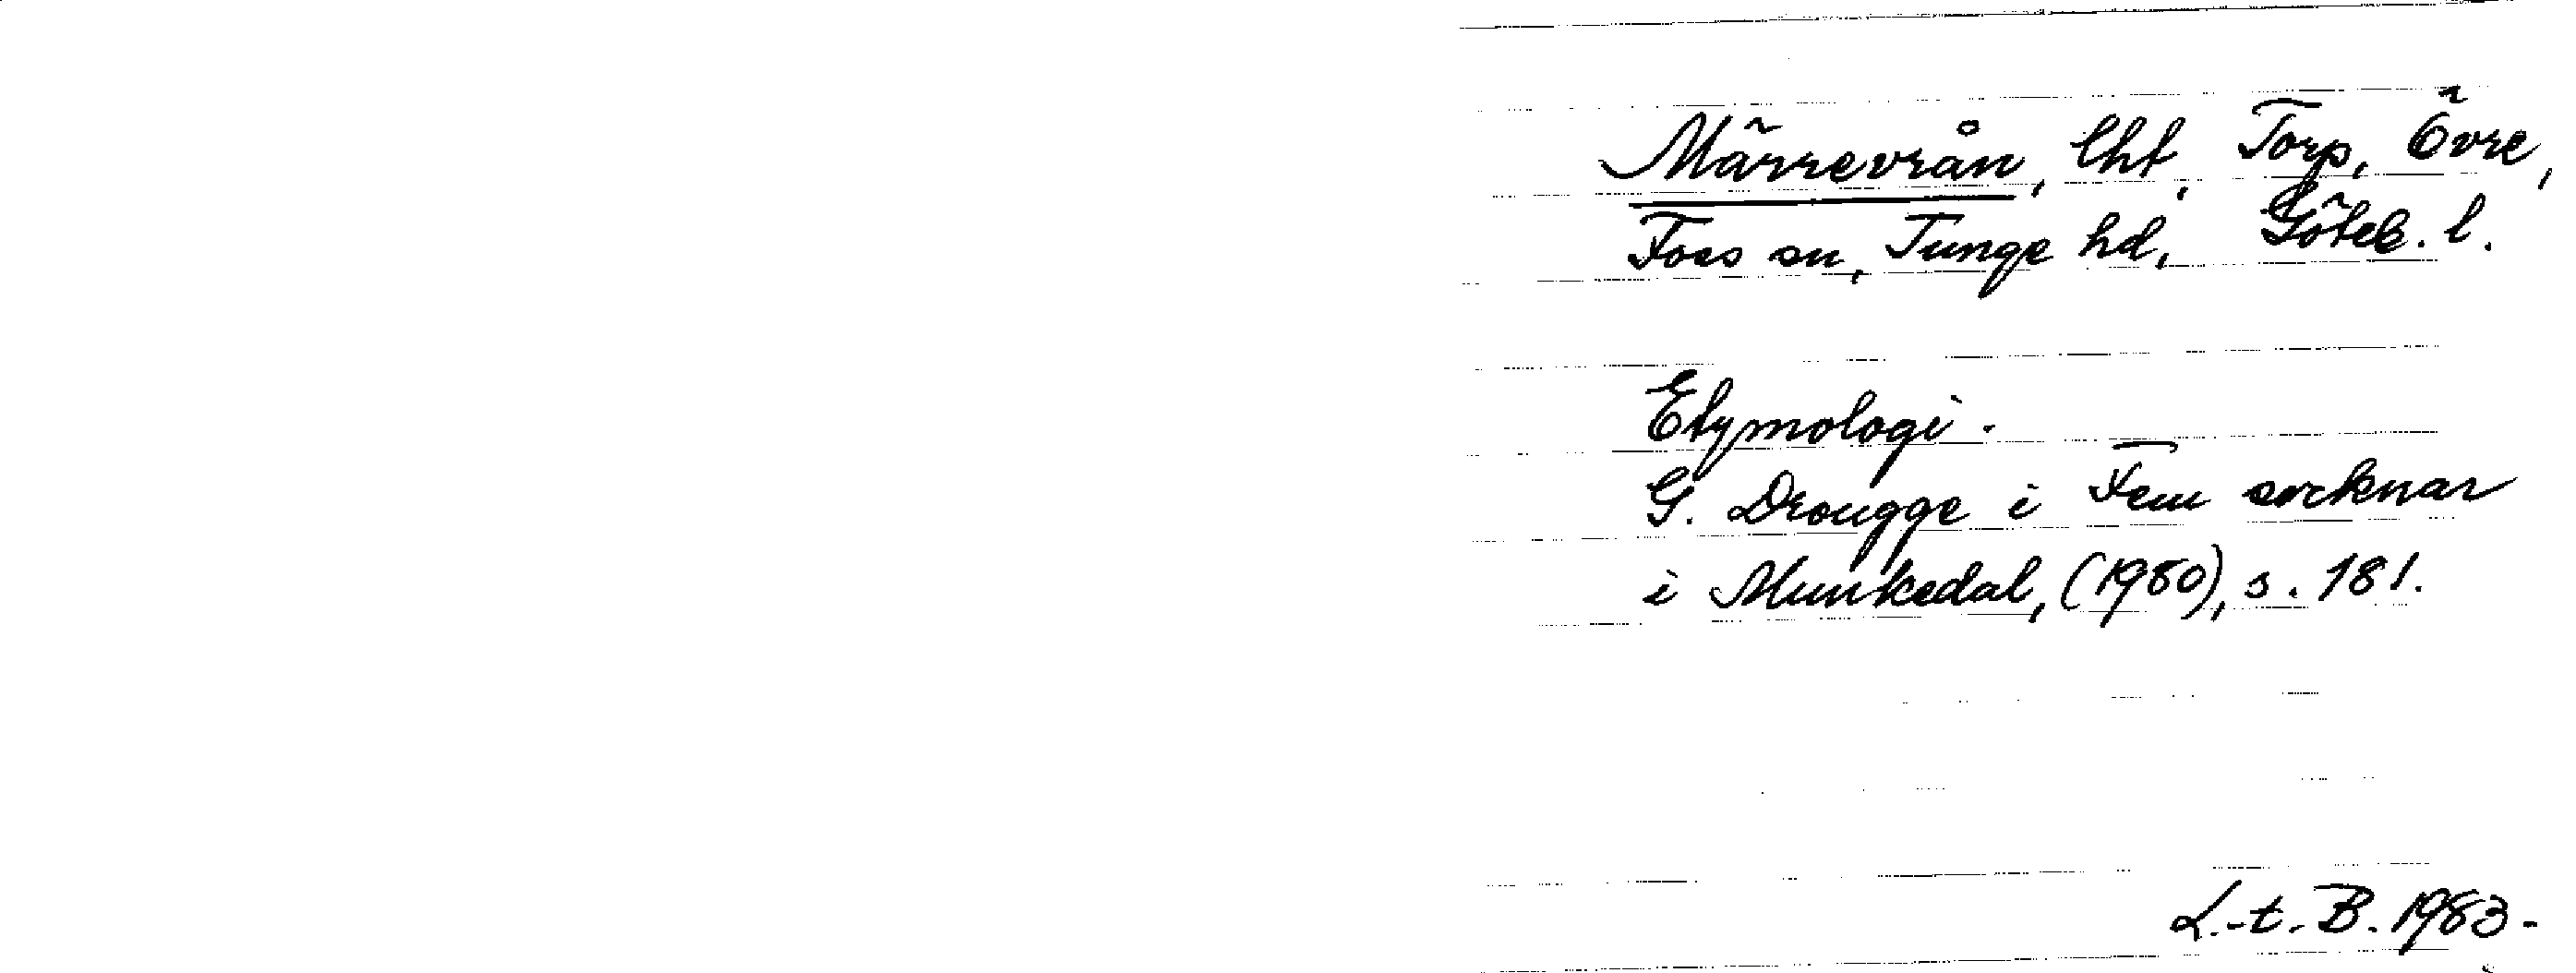 Märrevrån, lht, Torp, Övre,
Foss sn, Tunge hd, Göteb. l.
Etymologi.
G. Drougge i Fem socknar
i Munkedal, (1980), s. 181.
L.-t. B. 1983.